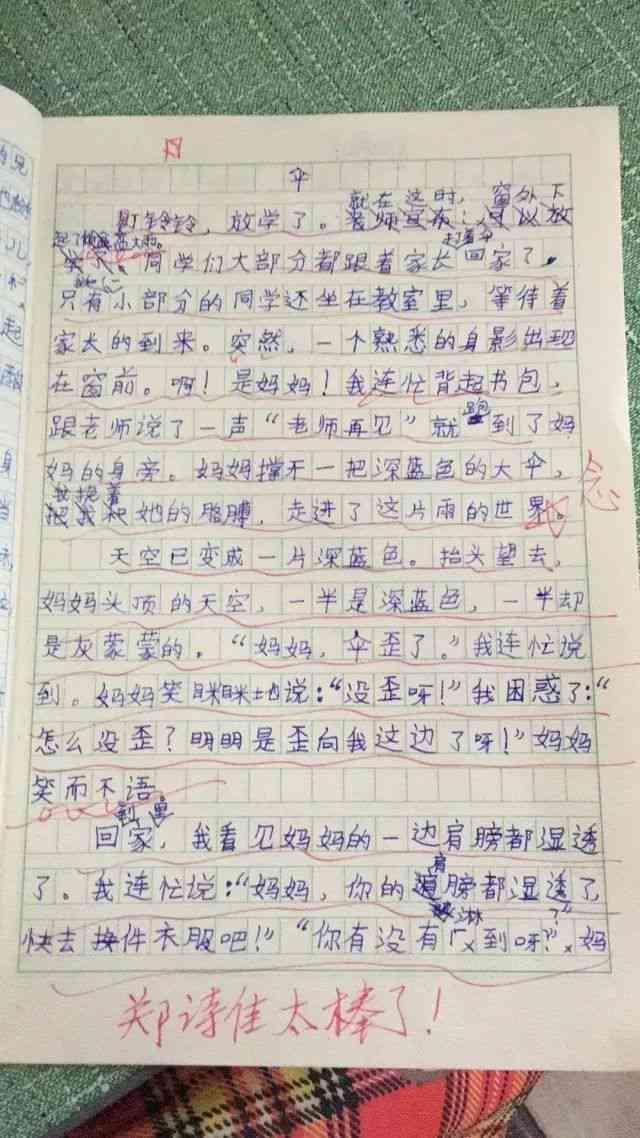 伞
就在这时,窗外下
叮铃铃,放学了。老师宣布:可以放
起了倾盆大雨。
走着伞
学了。同学们大部分都跟着家长回家了,
只有小部分的同学还坐在教室里,等待着
家长的到来。突然,一个熟悉的身影出现
在窗前。啊!是妈妈!我连忙背起书包,
跟老师说了一声“老师再见”就跑到了妈
妈的身旁。妈妈撑开一把深蓝色的大伞,
我挽着
她的胳膊,走进了这片雨的世界。
天空已变成一片深蓝色。抬头望去,
妈妈头顶的天空,一半是深蓝色,一半却
是灰蒙蒙的。“妈妈,伞歪了。”我连忙说
到。妈妈笑眯眯地说:“没歪呀!”我困惑了:“
怎么没歪?明明是歪向我这边了呀!”妈妈
笑而不语。
到 里
回家,我看见妈妈的一边肩膀都湿透
了。我连忙说:“妈妈,你的肩膀都湿透了,
淋 ?”
快去换件衣服吧!”“你有没有到呀?”妈
念
郑诗佳太棒了!